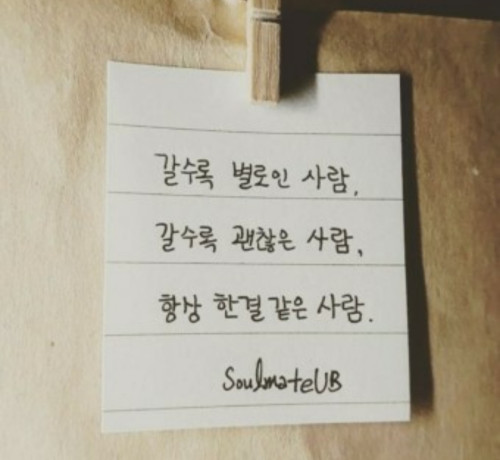 갈수록 별로인 사람,
갈수록 괜찮은 사람,
항상 한결같은 사람.
SoulmateUB